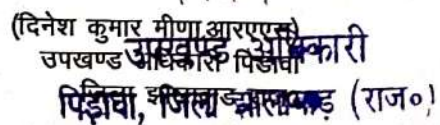 (दिनेश कुमार मीणा आरएएस)
उपखण्ड अधिकारी पिडावा
उपखण्ड अधिकारी
पिड़ावा, जिला झालावाड़ (राज०)